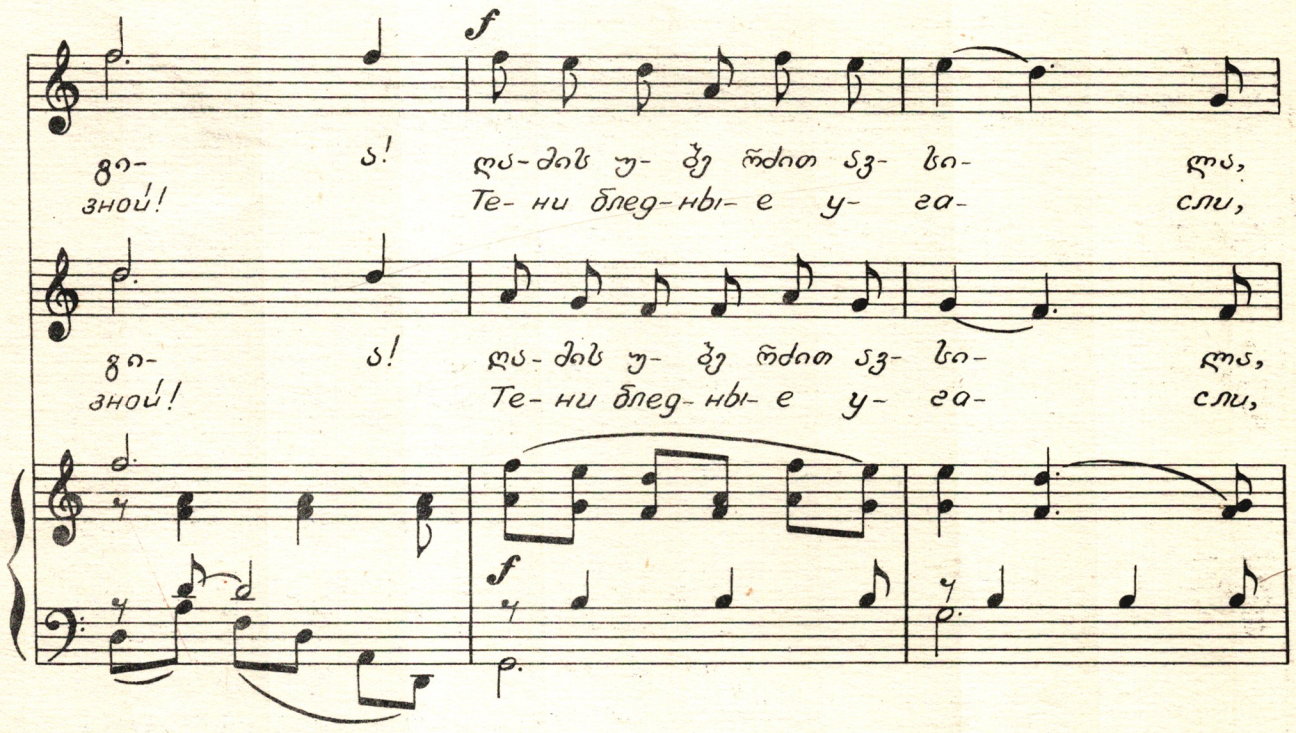 f
გი- ა! ღა-მის უ- ბე რძით ავ- სი- ლა,
зной! Те- ни блед-ны- е у- га- сли,
გი- ა! ღა-მის უ- ბე რძით ავ- სი- ლა,
зной! Те- ни блед-ны- е у- га- сли,
f